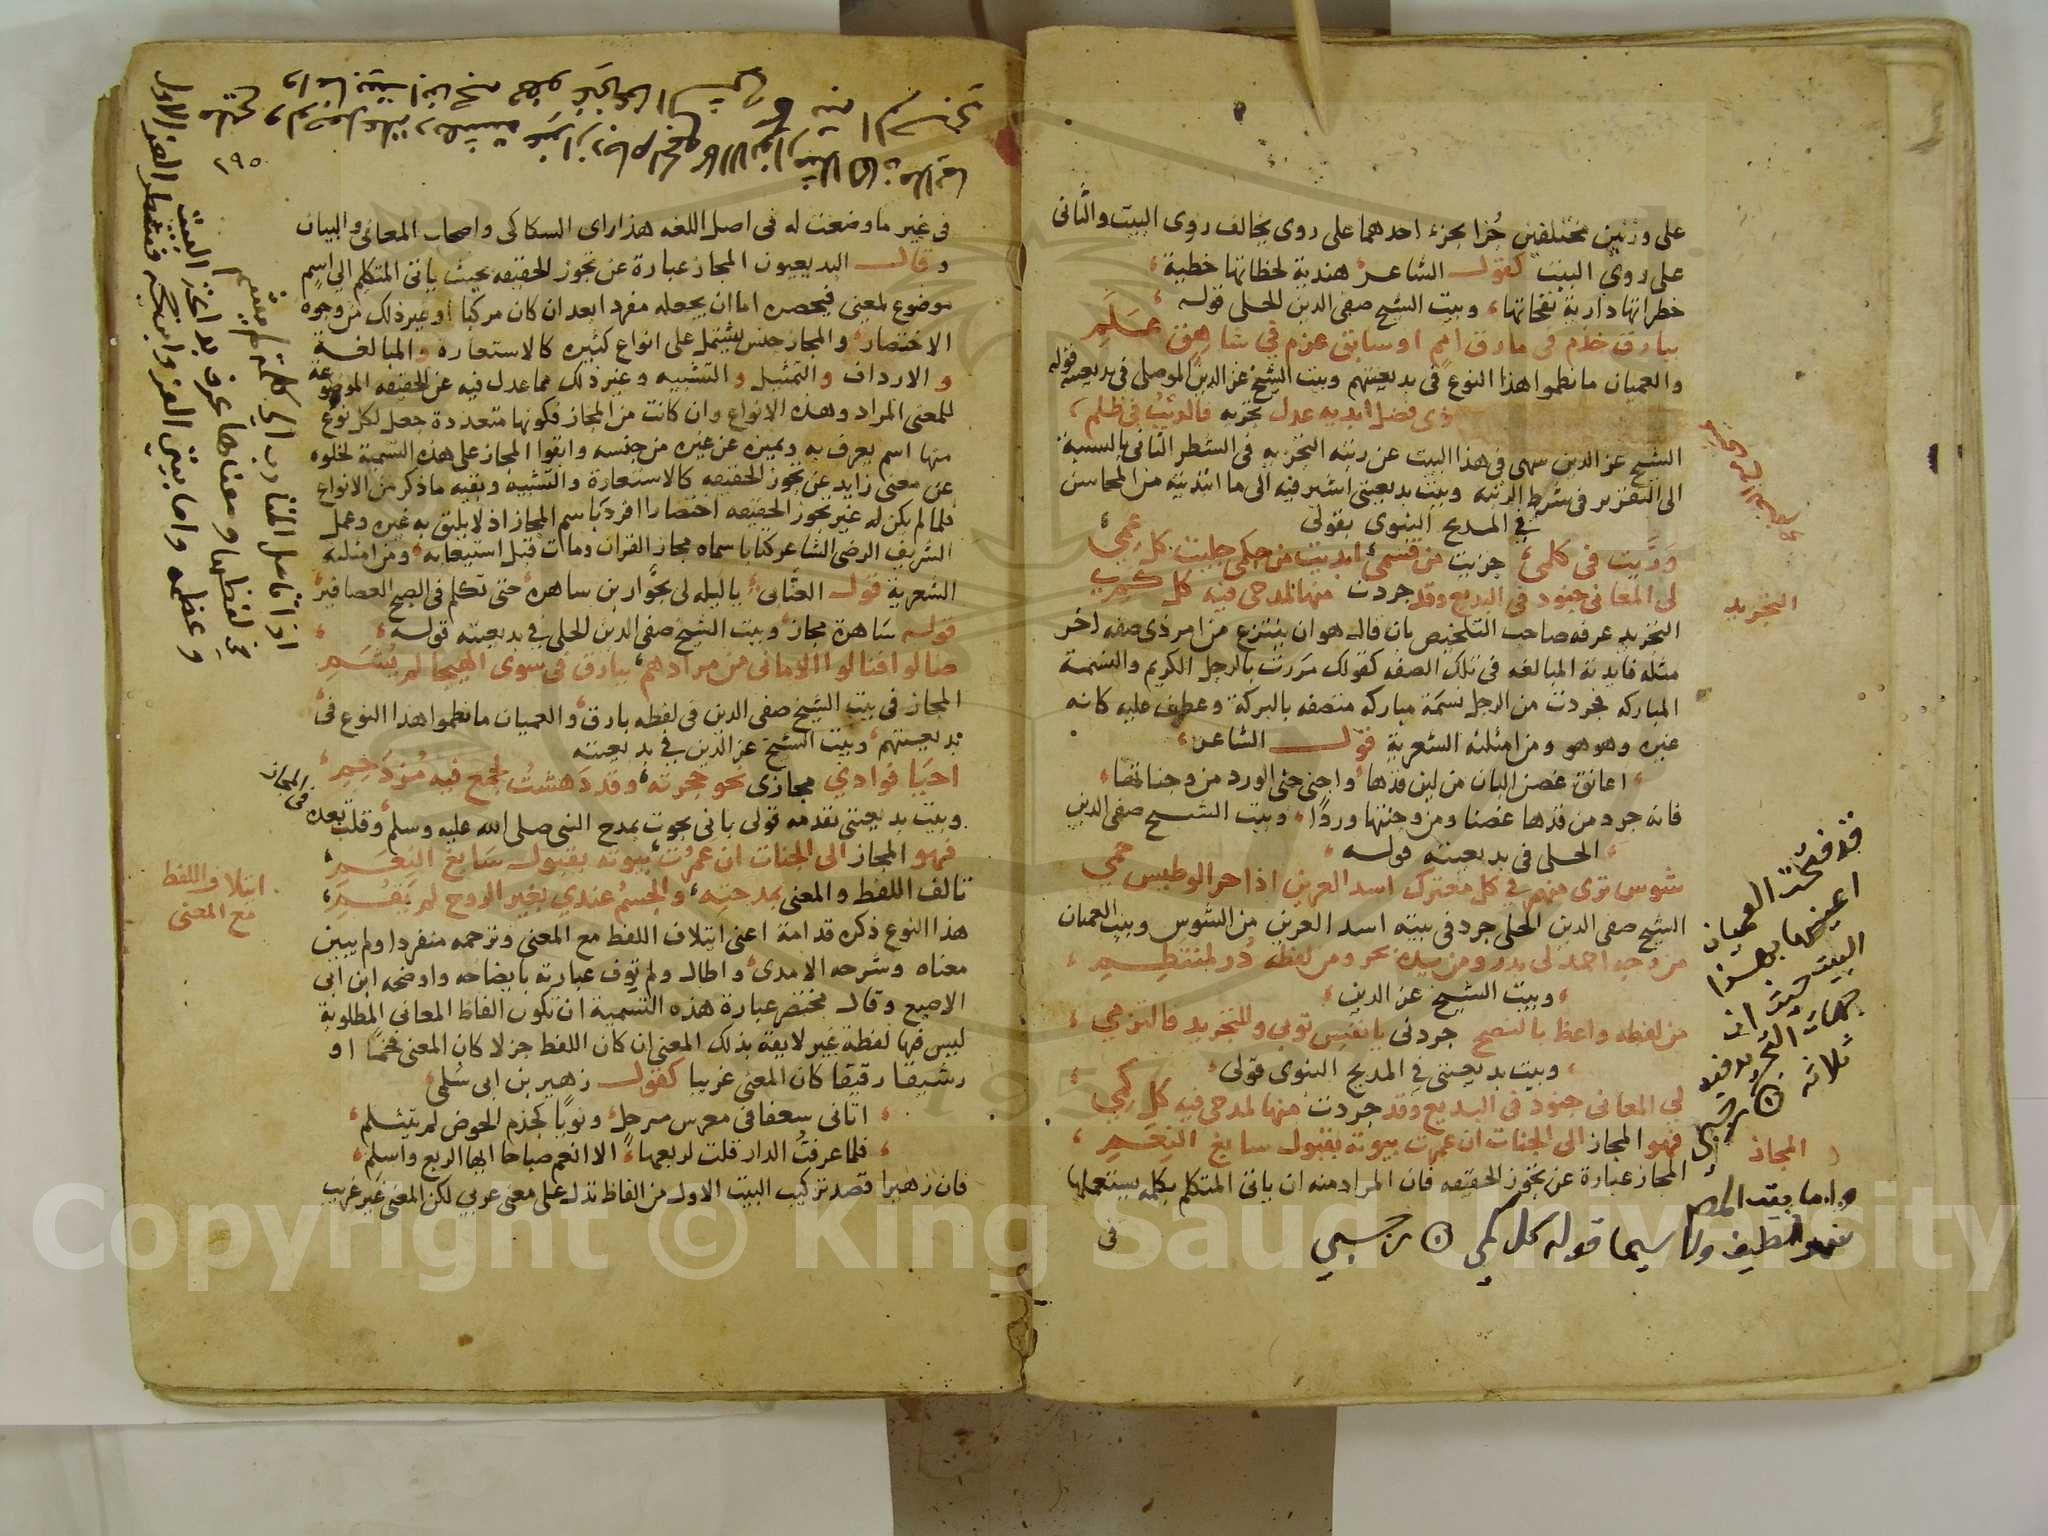 على وزنين مختلفين جُزءا بجزء احدهما على روى يخالف روى البيت والثانى
على روي البيت كقول الشاعر هندية لحظاتها خطية
خطراتها دارية نفحاتها وبيت الشيخ صفى الدين الحلى قوله
ببارق خذم فى مارق امم او سابق عزم في شاهق عَلَم
والعميان ما نظموا هذا النوع فى بديعيتهم وبيت الشيخ عز الدين الموصلى فى بديعيته قوله
ذى فضل ابديه عدل تجزيه فالذئب فى ظلم
الشيخ عز الدين سهى في هذا البيت عن رتبه التجزيه فى الشطر الثانى بالنسبة
الى التقرير فى شرط الرتبه وبيت بديعيتى اشير فيه الى ما ابتديته من المحاسن
في المديح النبوى بقولى
وَرَّيت فى كَلمى جزيت من قسمى ابديت من حكمى جليت كل عمى
لى المعانى جنود فى البديع وقد جردت منها لمدحى فيه كل كمى
التجريد
التجريد عرفه صاحب التلخيص بان قال هو ان ينتزع من امر ذى صفه اخر
مثله فايدته المبالغه فى تلك الصفه كقولك مررت بالرجل الكريم والنسمة
المباركه فجردت من الرجل نسمة مباركه متصفه بالبركة وعطف عليه كانه
غيره وهو هو ومن امثلته الشعرية قول الشاعر
اعانق غصن البان من لين قدها واجنى جنى الورد من وجناتها
فانه جرد من قدها غصنا ومن وجنتها وردًا وبيت الشيخ صفى الدين
الحلى فى بديعيته قوله
شوس ترى منهم في كل معترك اسد العرين اذا حر الوطيس حمي
الشيخ صفى الدين الحلى جرد فى بيته اسد العرين من الشوس وبيت العميان
من وجه احمد لى بدر ومن يده بحر ومن لفظه دُر لمنتظِم
وبيت الشيخ عز الدين
من لفظه واعظ بالنصح جردنى يا نفس توبي وللتجريد فالتزمي
وبيت بديعيتى في المديح النبوى قولى
لى المعانى جنود فى البديع وقد جردت منها لمدحى فيه كل كمي
المجاز
فهو المجاز الى الجنات ان عمرت بيوته بقبول سابغ النِعَم
المجاز عبارة عن تجوز الحقيقه فان المراد منه ان ياتى المتكلم بكلمه يستعملها
فى
قد فتحت العميان
اعينهم بهذا
البيت غير ان
كلمات التجريد فيه
ثلاثة
واما بيت المصـ
فهو لطيف ولا سيما قوله كل كمي
فى غير ما وضعت له فى اصل اللغه هذا راى السكاكى واصحاب المعانى والبيان
وقال البديعيون المجاز عبارة عن تجوز الحقيقه بحيث ياتى المتكلم الى اسم
موضوع لمعنى فيختصره اما ان يجعله مفردا بعد ان كان مركبا او غير ذلك من وجوه
الاختصار والمجاز جنس يشتمل على انواع كثيره كالاستعارة والمبالغة
والارداف والتمثيل والتشبيه وغير ذلك مما عدل فيه عن الحقيقه الموضوعة
للمعنى المراد وهذه الانواع وان كانت من المجاز فكونها متعددة جعل لكل نوع
منها اسم يعرف به ويميزه عن غيره من جنسه وابقوا المجاز على هذه التسمية لخلوه
عن معنى زايد عن تجوز الحقيقه كالاستعارة والتشبيه وبقيه ما ذكر من الانواع
فلما لم يكن له غير تجوز الحقيقه اختصارا افرد باسم المجاز اذ لا يليق به غيره وعمل
الشريف الرضى الشاعر كتابا سماه مجاز القران ومات قبل استيعابه ومن امثلته
الشعرية قول العتّابى يا ليله لى بحوّارين ساهرة حتى تكلم فى الصبح العصافيرُ
قوله سَاهرة مجاز وبيت الشيخ صفى الدين الحلى في بديعيته قوله
صالوا فنالوا الامانى من مرادهم ببارق فى سوى الهيجا لم يُشَم
المجاز فى بيت الشيخ صفى الدين فى لفظه بارق والعميان ما نظموا هذا النوع فى
بديعيتهم وبيت الشيخ عز الدين في بديعيته
احيَا فوادي مجازى نحو حجرته وقد دَهشتُ لجمع فيه مُزدَحِم
وبيت بديعيتى تقدمه قولى بانى بحوت بمدح النبى صلى الله عليه وسلم وقلت بعده فى المجاز
فهو المجاز الى الجنات ان عمرت بيوته بقبول سَابغ النِعَم
ايتلاف اللفظ
مع المعنى
تالف اللفظ والمعنى بمدحته والجسمُ عندي بغير الروح لم يَقُم
هذا النوع ذكره قدامة اعنى ايتلاف اللفظ مع المعنى وترجمه منفردا ولم يبين
معناه وشرحه الامدى واطال ولم توف عبارته بايضاحه واوضحه ابن ابى
الاصبع وقال مختصر عبارة هذه التسمية ان تكون الفاظ المعانى المطلوبة
ليس فيها لفظة غير لايقة بذلك المعنى ان كان اللفظ جزلا كان المعنى فخمًا او
رشيقا رقيقا كان المعنى غريبا كقول زهير بن ابى سُلمى
اثافى سعفا فى معرس مرجل ونويًا كجذم الحوض لم يتثلم
فلما عرفتُ الدار قلت لربعها الا انعم صباحا ايها الربع واسلم
فان زهيرا قصد تركيب البيت الاول من الفاظ تدل على معنى عربى لكن المعنى غير غريب
٢٩٥
Copyright © King Saud University
1957